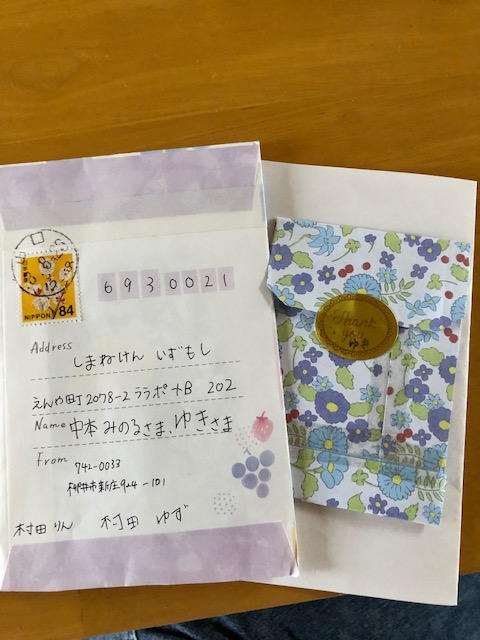 NIPPON 84
6930021
Address
しまねけん いずもし
えんや町2078-2 ララポートB 202
Name 中本 みのるさま、ゆきさま
From
742-0033
柳井市新庄924-101
村田りん 村田 ゆず
Thank
you
ゆき